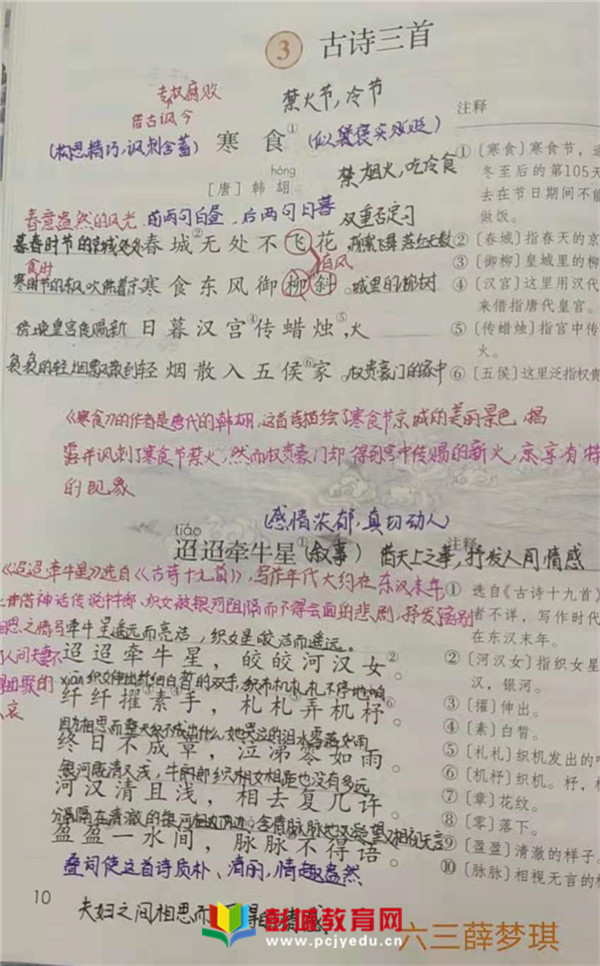 3 古诗三首
专权腐败
禁火节,冷节
借古讽今
注释
(构思精巧,讽刺含蓄)
寒食①
禁烟火,吃冷食
hóng
[唐] 韩翃
①〔寒食〕寒食节,
冬至后的第105天
去在节日期间不能
做饭。
春意盎然的风光
前两句白昼,后两句日暮
双重否定
暮春时节的
春城②无处不飞花
②〔春城〕指春天的京
柳絮飞舞 落红无数
③〔御柳〕皇城里的柳
寒食东风御柳③斜
城里的柳树
④〔汉宫〕这里用汉代
来借指唐代皇宫。
傍晚皇宫传赐新火
日暮汉宫④传蜡烛⑤,
⑤〔传蜡烛〕指宫中传
火。
袅袅的轻烟
轻烟散入五侯⑥家
权贵豪门的家中
⑥〔五侯〕这里泛指权贵
《寒食》的作者是唐代的韩翃,这首诗描绘了寒食节京城的美丽景色,揭
露并讽刺了寒食节禁火,然而权贵豪门却得到宫中传赐的新火,享有特
的现象
(感情浓郁,真切动人)
tiáo
迢迢牵牛星①
(叙事)
借天上之事,抒发人间情感
注释
《迢迢牵牛星》选自《古诗十九首》,写作年代大约在东汉末年
①选自《古诗十九首》
者不详,写作时代
在东汉末年。
借神话传说牛郎、织女被银河阻隔而不得会面的悲剧,抒发
牵牛星遥远而亮洁,织女星皎洁而遥远。
迢迢牵牛星,皎皎河汉女②。
②〔河汉女〕指织女星
汉,银河。
xiān
织女伸出纤细白皙的双手,织布机札札不停地响
纤纤擢③素④手,札札⑤弄机杼⑥。
③〔擢〕伸出。
④〔素〕白皙。
因为相思而整天织不成
终日不成章⑦,泣涕零⑧如雨。
⑤〔札札〕织机发出的
⑥〔机杼〕织机。杼,
银河既清又浅,
相距也没有多远
河汉清且浅,相去复几许。
⑦〔章〕花纹。
⑧〔零〕落下。
盈盈⑨一水间,脉脉⑩不得语。
⑨〔盈盈〕清澈的样子。
⑩〔脉脉〕相视无言的样
叠词使这首诗质朴、清丽,情趣盎然
10
夫妇之间相思而不得的情感
创城教育网
www.pcjyedu.cn
六三薛梦琪